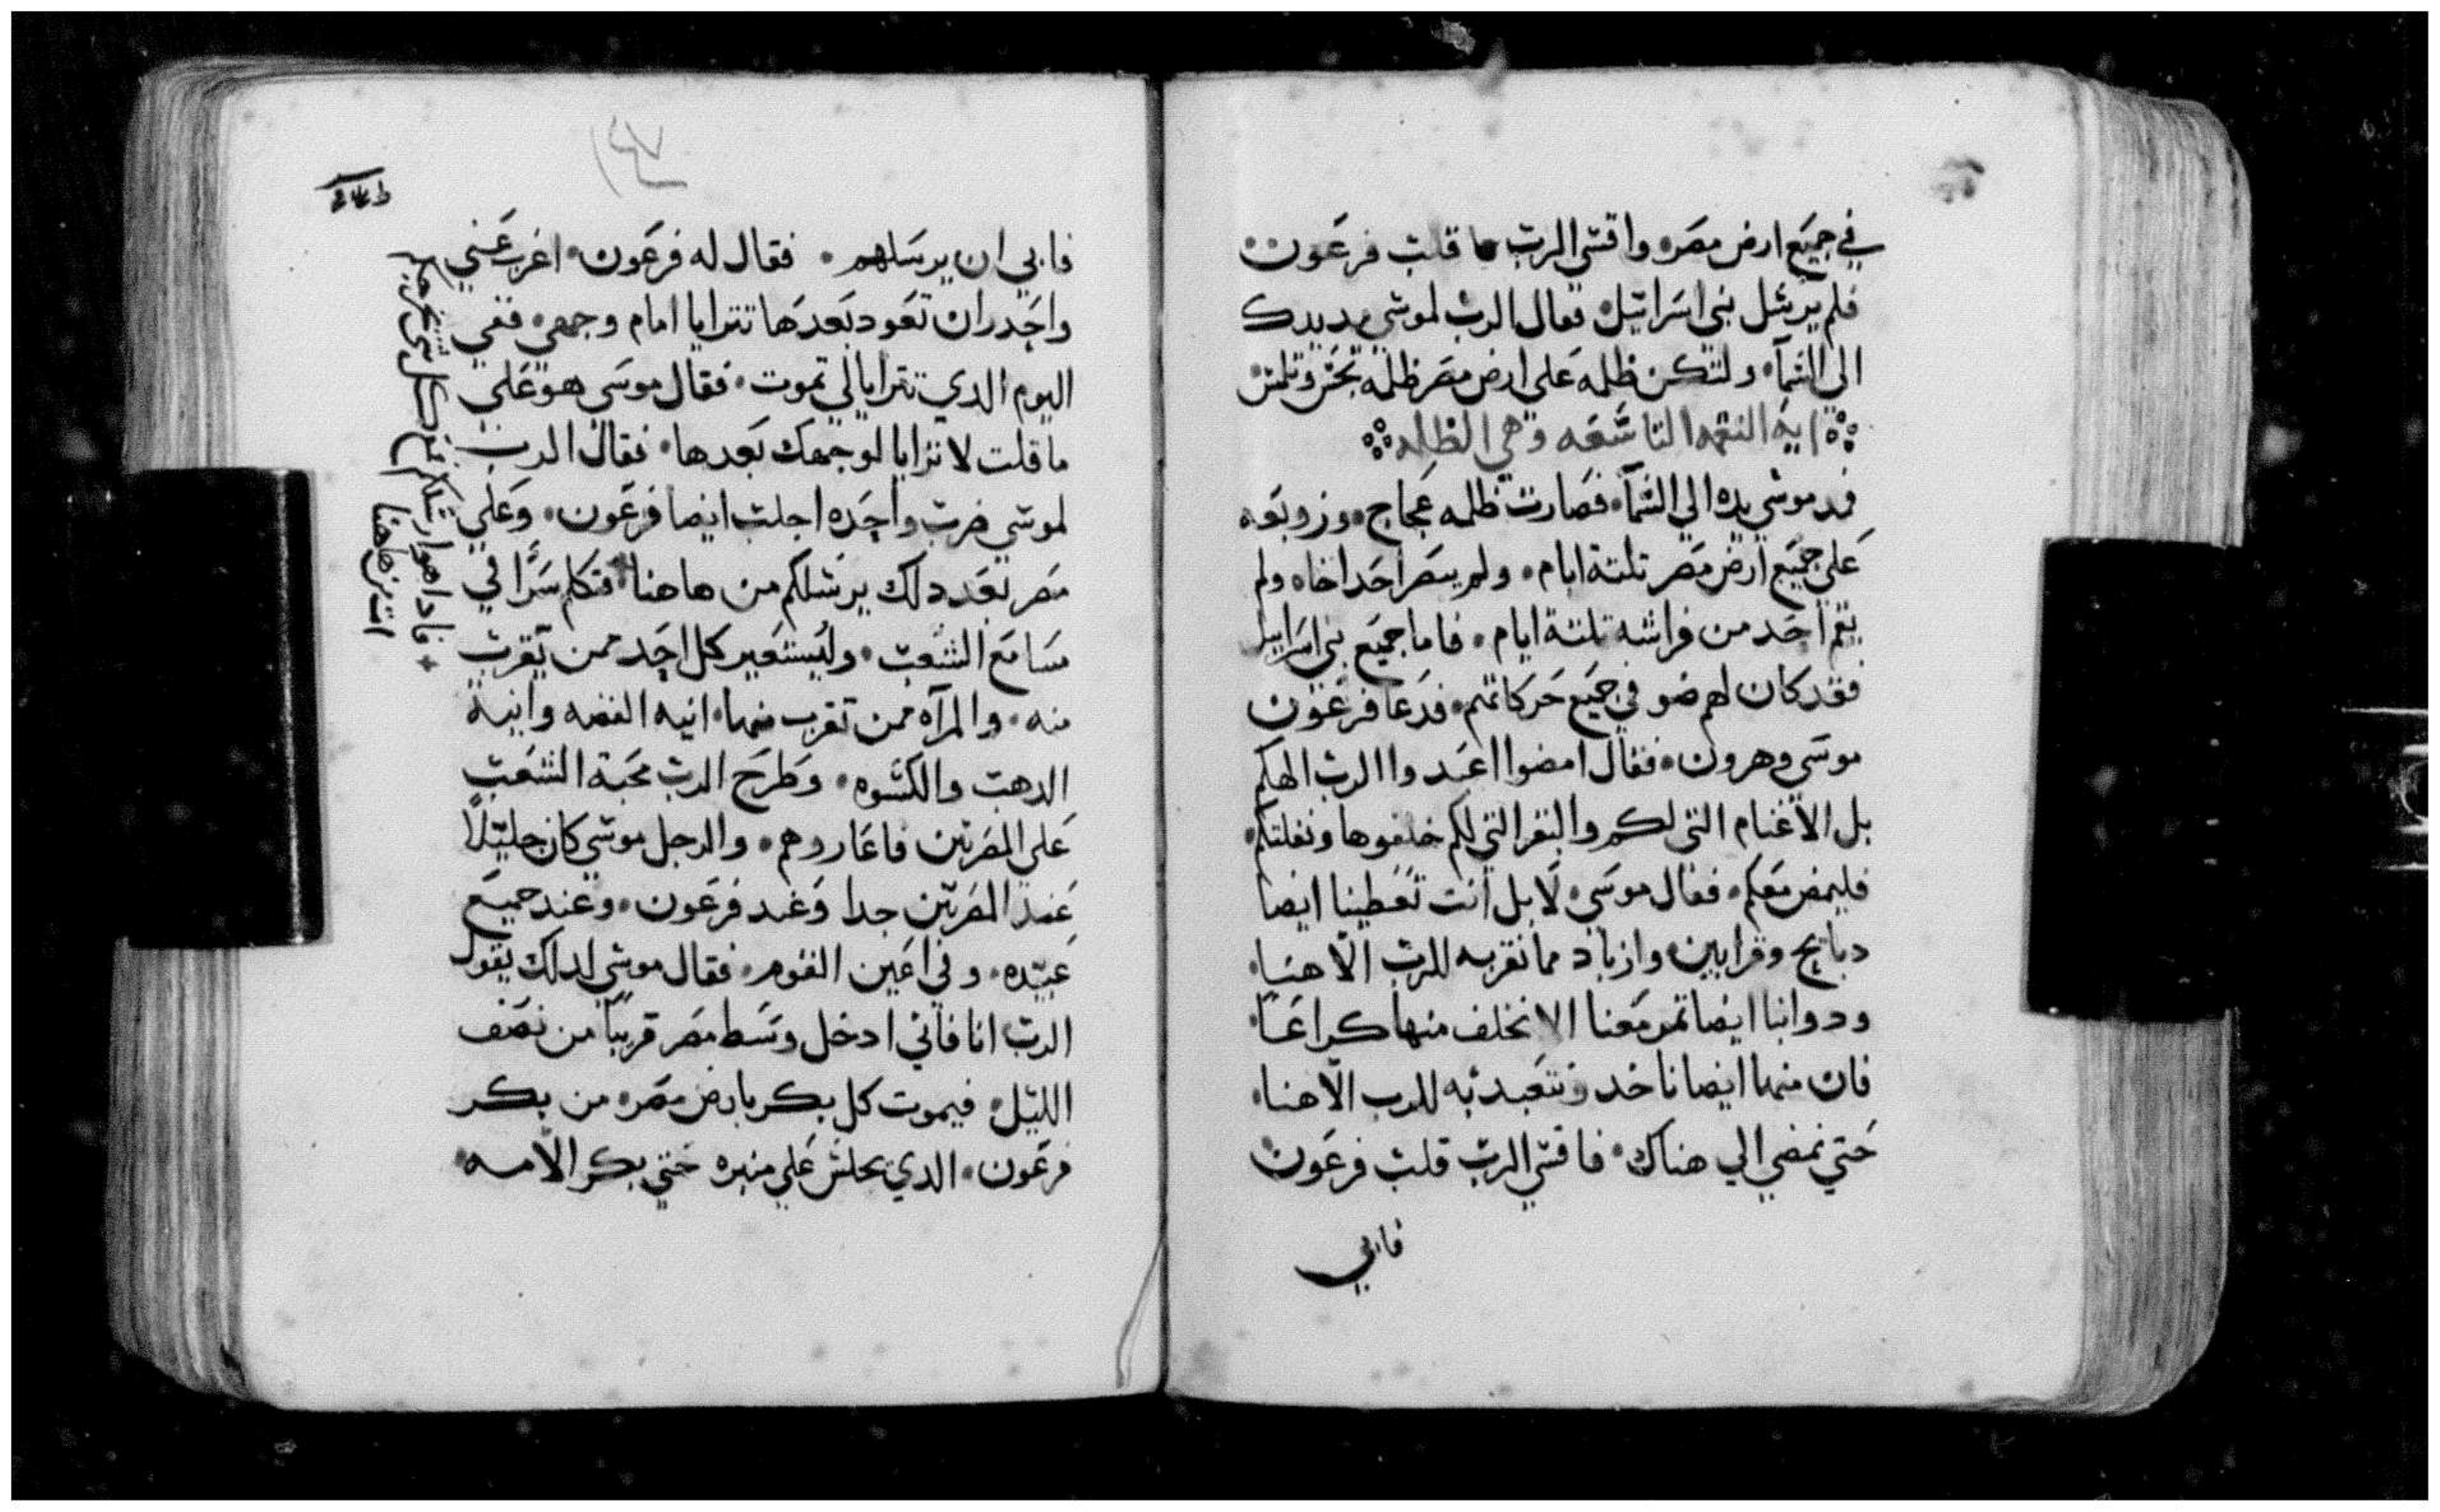 في جميع ارض مصر واقسي الرب قلب فرعون
فلم يرسل بني اسراييل فقال الرب لموسي مد يدك
الي السمآ ولتكن ظلمه علي ارض مصر ظلمه تجس وتلمس
ايه النقمه التاسعه وهي الظلمه
فمد موسي يده الي السمآ فصارت ظلمه عجاج وزوبعه
علي جميع ارض مصر تلتة ايام ولم يبصر احد اخاه ولم
يقم احد من فراشه تلتة ايام فاما جميع بني اسراييل
فقد كان لهم ضو في جميع حركاتهم فدعا فرعون
موسي وهرون فقال امضوا اعبدوا الرب الهكم
بل الاغنام التي لكم والبقر التي لكم خلفوها ونقلتكم
فليمض معكم فقال موسي لا بل انت تعطينا ايضا
دبايح وقرابين وازباد مما نقربه للرب الاهنا
ودوابنا ايضا تمر معنا الا نخلف منها كراعا
فان منها ايضا ناخد ونتعبد به للرب الاهنا
حتي نمضي الي هناك فاقسي الرب قلب فرعون
فابي
فابي ان يرسلهم فقال له فرعون اغرب عني
واحدر ان تعود بعدها تترايا امام وجهي ففي
اليوم الدي تترايا لي تموت فقال موسي هو علي
ما قلت لا نترايا لوجهك بعدها فقال الرب
لموسي ضربه واحده اجلب ايضا فرعون وعلي
مصر بعد دلك يرسلكم من هاهنا فتكلم سرًا في
مسامع الشعب وليستعير كل احد ممن يقرب
منه والمرآه ممن تقرب منها انيه الفضه وانية
الدهب والكسوه وطرح الرب محبة الشعب
علي المصريين فاعاروهم والرجل موسي كان جليلًا
عند المصريين جدا وعند فرعون وعند جميع
عبيده وفي اعين القوم فقال موسي لدلك يقول
الرب انا فاني ادخل وسط مصر قريبًا من نصف
الليل فيموت كل بكر بارض مصر من بكر
فرعون الدي يجلس علي منبره حتي بكر الامه
فادا هو ارسلكم مع كل شي يخرجكم
من هاهنا